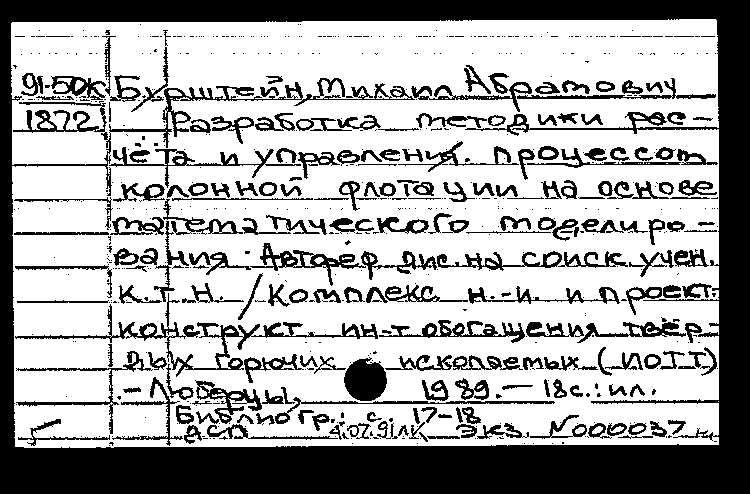 91-5DK Бурштейн, Михаил Абрамович
1872 Разработка методики рас-
чёта и управления процессом
колонной флотации на основе
математического моделиро-
вания : Автореф. дис. на соиск. учен.
к.т.н. / Комплекс. н.-и. и проект.-
конструкт. ин-т обогащения твёр-
дых горючих ископаемых (ИОТТ)
. - Люберцы, 1989. - 18 с. : ил.
Библиогр.: с. 17-18
ДСП 4.07.91 ЛК Экз. N 000037